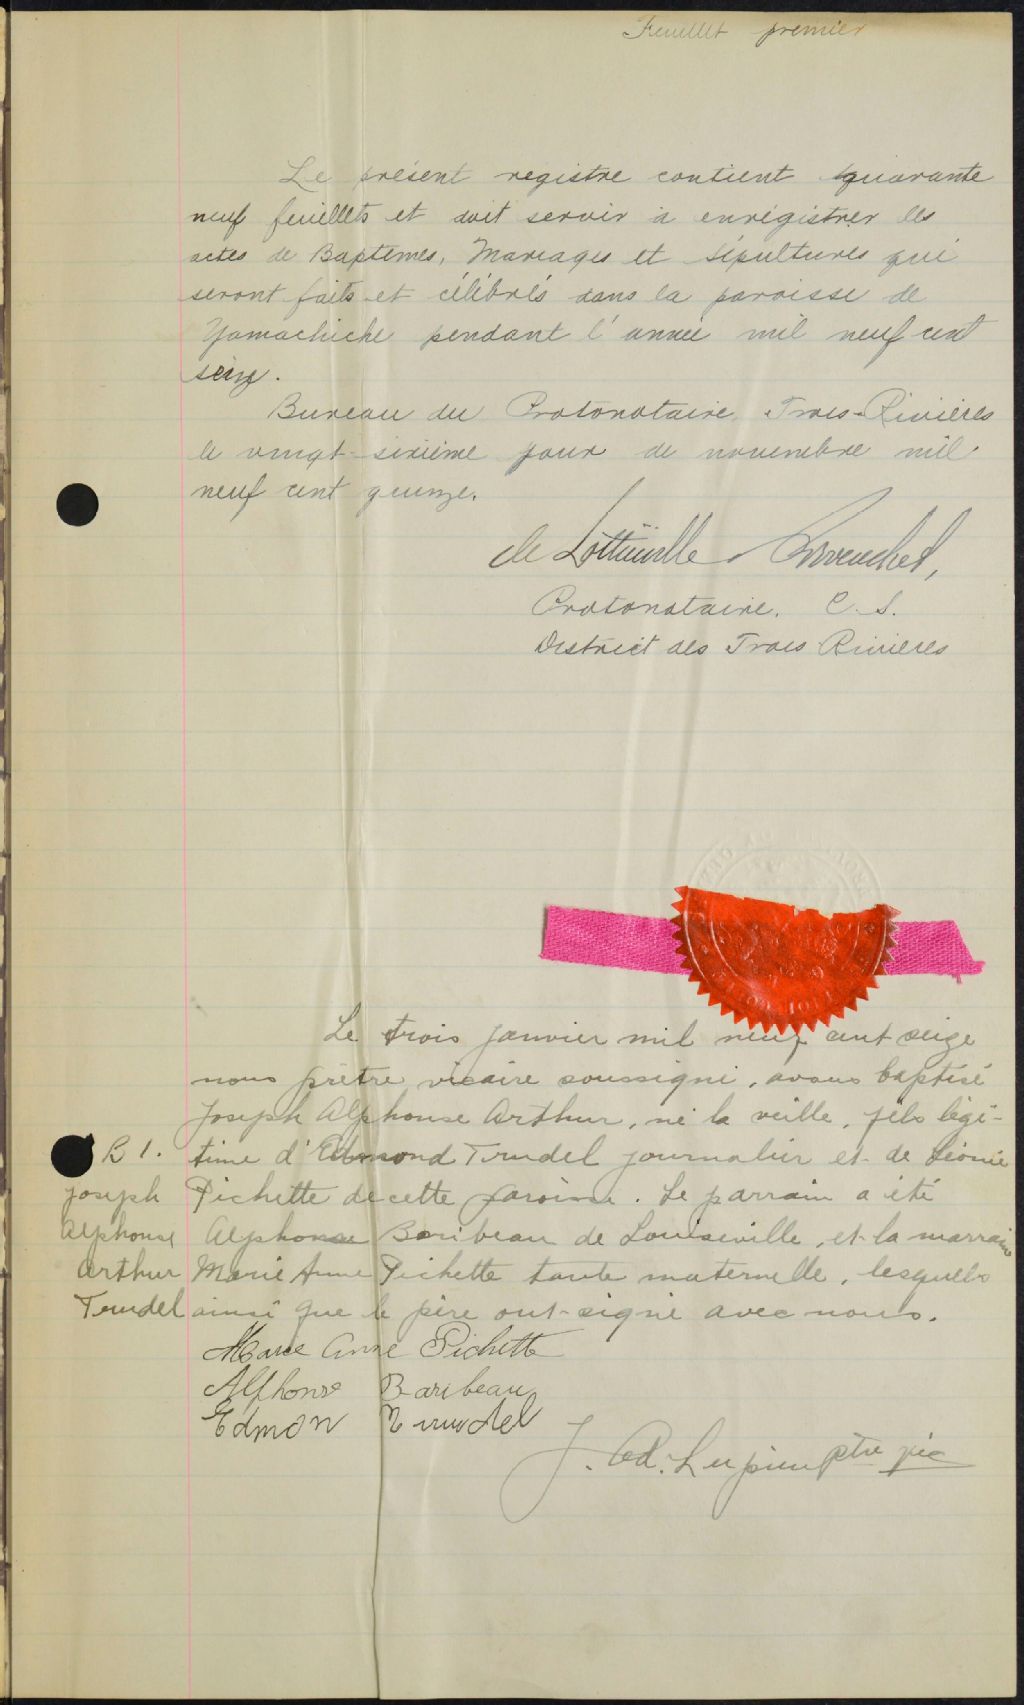 Feuillet premier
Le présent registre contient quarante
neuf feuillets et doit servir à enrégistrer les
actes de Baptêmes, Mariages et Sépultures qui
seront faits et célébrés dans la paroisse de
Yamachiche pendant l'année mil neuf cent
seize.
Bureau du Protonotaire, Trois-Rivières
le vingt-sixième jour de novembre mil
neuf cent quinze.
de Lottinville
Protonotaire. C. S.
District des Trois Rivières
Le trois janvier mil neuf cent seize
nous prêtre vicaire soussigné, avons baptisé
Joseph Alphonse Arthur, né la veille, fils légi-
B 1. time d'Edmond Trudel journalier et de Léonie
Joseph Pichette de cette paroisse. Le parrain a été
Alphonse Alphonse Baribeau de Louiseville, et la marraine
Arthur Marie Anne Pichette tante maternelle, lesquels
Trudel ainsi que le père ont signé avec nous.
Marie Anne Pichette
Alphonse Baribeau
Edmon Trudel
J. Ed. Lupien ptre vic